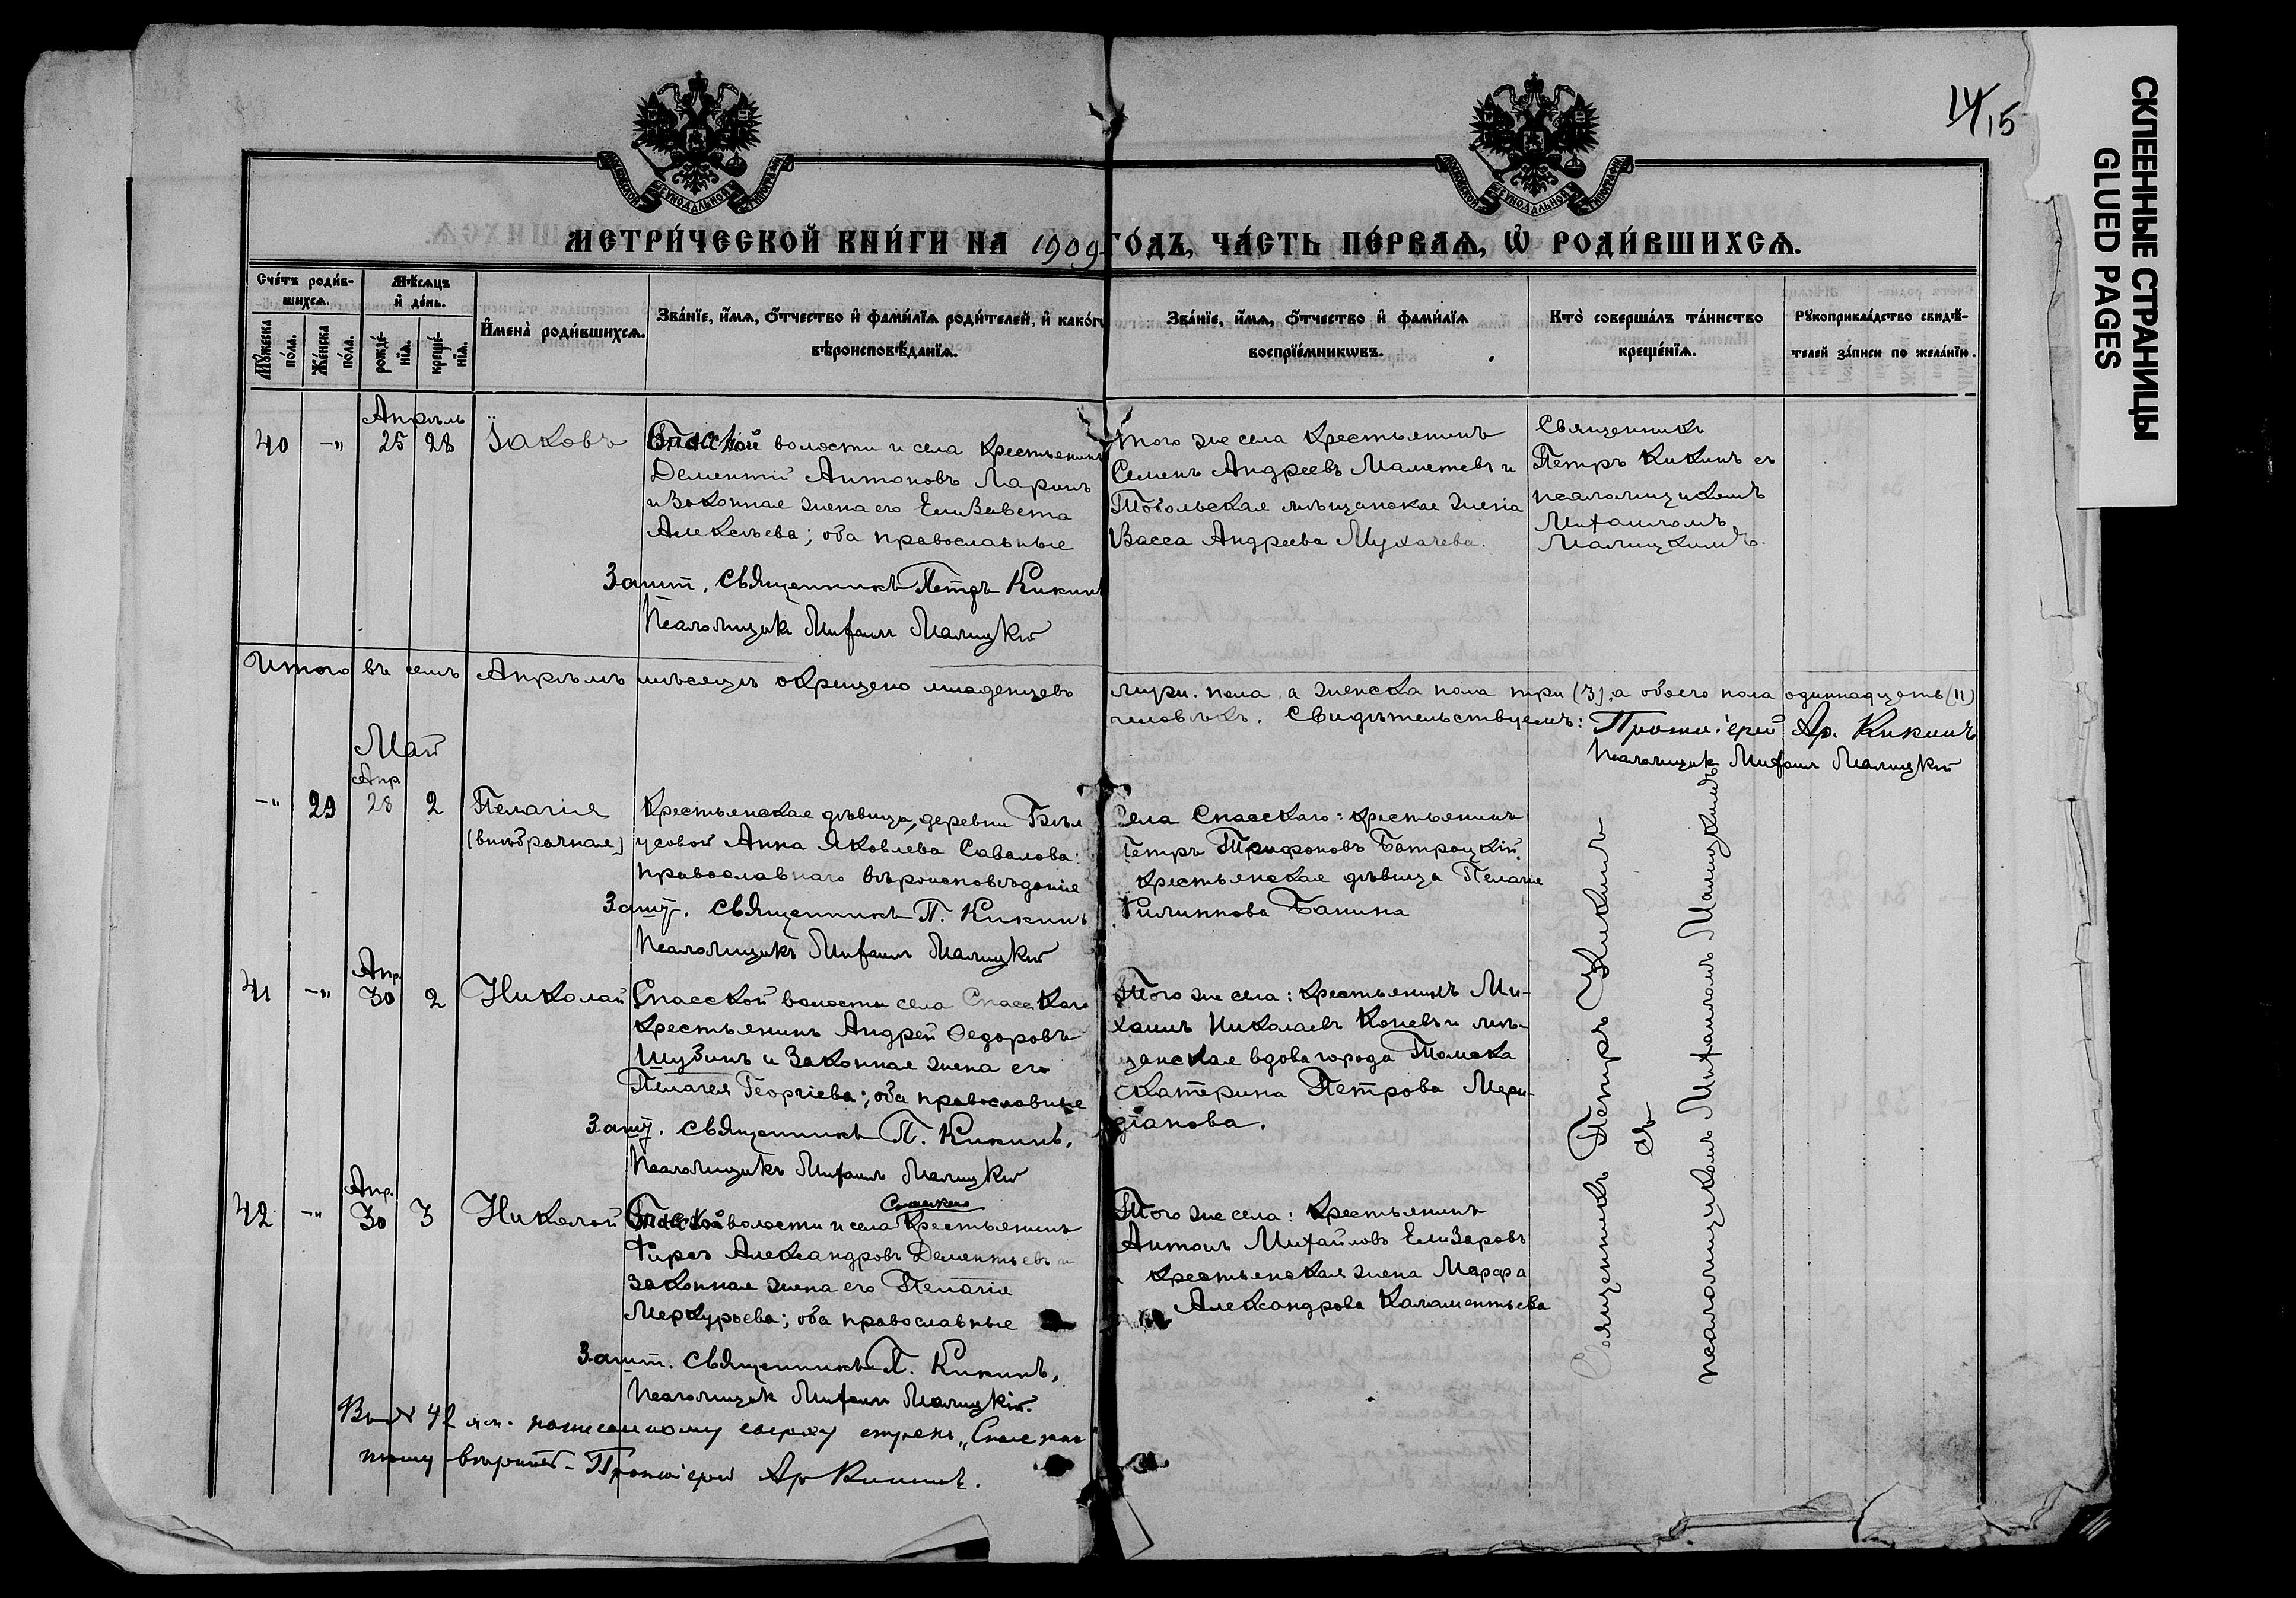 14/15
СКЛЕЕННЫЕ СТРАНИЦЫ
GLUED PAGES
МЕТРИ́ЧЕСКОЙ КНИ́ГИ НА 1909 ГО́ДЪ, ЧА́СТЬ ПЕ́РВАѦ, Ѡ҆ РОДИ́ВШИХСѦ.
Сче́тъ роди́в-
шихсѧ.
Мꙋ́жеска
по́ла.
Же́нска
по́ла.
Мѣ́сѧцъ
и҆ де́нь.
рожде́-
нїѧ.
креще́-
нїѧ.
И҆мена̀ роди́вшихсѧ.
Зва́нїе, и҆́мѧ, ѻ҆́тчество и҆ фами́лїѧ роди́телей, и҆ како́гѡ
вѣроисповѣ́данїѧ.
Зва́нїе, и҆́мѧ, ѻ҆́тчество и҆ фами́лїѧ
воспрїе́мникѡвъ.
Кто̀ соверша́лъ та́инство
креще́нїѧ.
Рꙋкоприкла́дство свидѣ́-
телей за́писи по жела́нїю.
Апрѣль
40 -"- 25 28 Іаковъ
Спасской волости и села крестьянинъ
Дементій Антоновъ Ларинъ
и законная жена его Елизавета
Алексѣева; оба православные
Зашт. Священникъ Петръ Кикинъ
Псаломщикъ Михаилъ Малицкій
Того же села крестьянинъ
Семенъ Андреевъ Маметевъ и
Тобольская мѣщанская жена
Васса Андреева Мухачева.
Священникъ
Петръ Кикинъ съ
псаломщикомъ
Михаиломъ
Малицкимъ.
Итого въ семъ Апрѣлѣ мѣсяцѣ окрещено младенцевъ
пола, а женска пола три (3), а обоего пола одиннадцать (11)
человѣкъ. Свидѣтельствуемъ: Протоіерей Ар. Кикинъ
Псаломщикъ Михаилъ Малицкій
Май
Апр.
-"- 29 28 2 Пелагія
(внѣбрачная)
Крестьянская дѣвица, деревни Бѣло
усовой Анна Яковлева Савалова:
православнаго вѣроисповѣданія
Зашт. Священникъ П. Кикинъ
Псаломщикъ Михаилъ Малицкій
Села Спасскаго: крестьянинъ
Петръ Трифоновъ Батроцкій.
крестьянская дѣвица Пелагія
Филиппова Банина
Апр.
41 -"- 30 2 Николай
Спасской волости села Спасскаго
крестьянинъ Андрей Ѳедоровъ
Шузинъ и законная жена его
Пелагея Георгіева; оба православные
Зашт. Священникъ П. Кикинъ.
Псаломщикъ Михаилъ Малицкій
Того же села: крестьянинъ Ми-
хаилъ Николаевъ Коневъ и мѣ-
щанская вдова города Томска
Екатерина Петрова Мери-
діанова.
Апр.
42 -"- 30 3 Николай
Спасской волости и села крестьянинъ
Фирсъ Александровъ Дементьевъ и
законная жена его Пелагія
Меркурьева; оба православные
Зашт. Священникъ П. Кикинъ.
Псаломщикъ Михаилъ Малицкій.
Того же села: крестьянинъ
Антонъ Михайловъ Елизаровъ
крестьянская жена Марфа
Александрова Каламентьева
Священникъ Петръ Кикинъ
съ
псаломщикомъ Михаиломъ Малицкимъ
№ 42 написанному сверху строкъ
вѣрить - Протоіерей Ар Кикинъ.